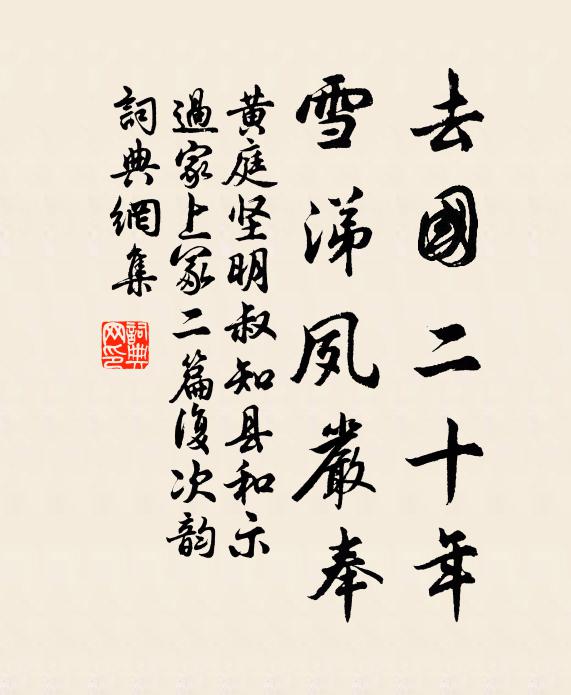 去國二十年
雪涕夙嚴奉
黄庭坚明叔知县和示
過家上冢二篇復次韵
詞典網集
詞典網印